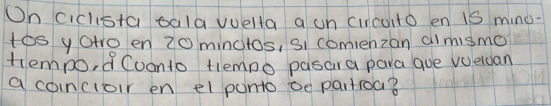 Un ciclista da la vuelta a un circuito en 15 minu-
tos y otro en 20 minutos, si comienzan al mismo
tiempo, d Cuanto tiempo pasara para que vuelvan
a coincidir en el punto de partida?